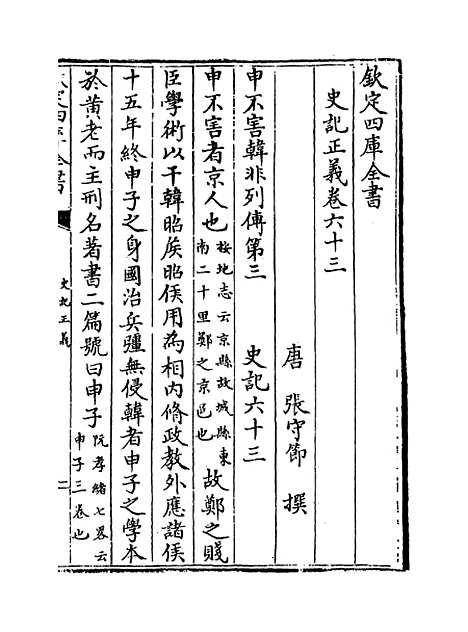 欽定四庫全書
史記正義卷六十三
唐 張守節 撰
申不害韓非列傳第三 史記六十三
申不害者京人也按地志云京縣故城縣東南二十里鄭之京邑也故鄭之賤
臣學術以干韓昭侯昭侯用為相内脩政教外應諸侯
十五年終申子之身國治兵彊無侵韓者申子之學本
於黄老而主刑名著書二篇號曰申子阮孝緒七畧云申子三卷也
史記正義